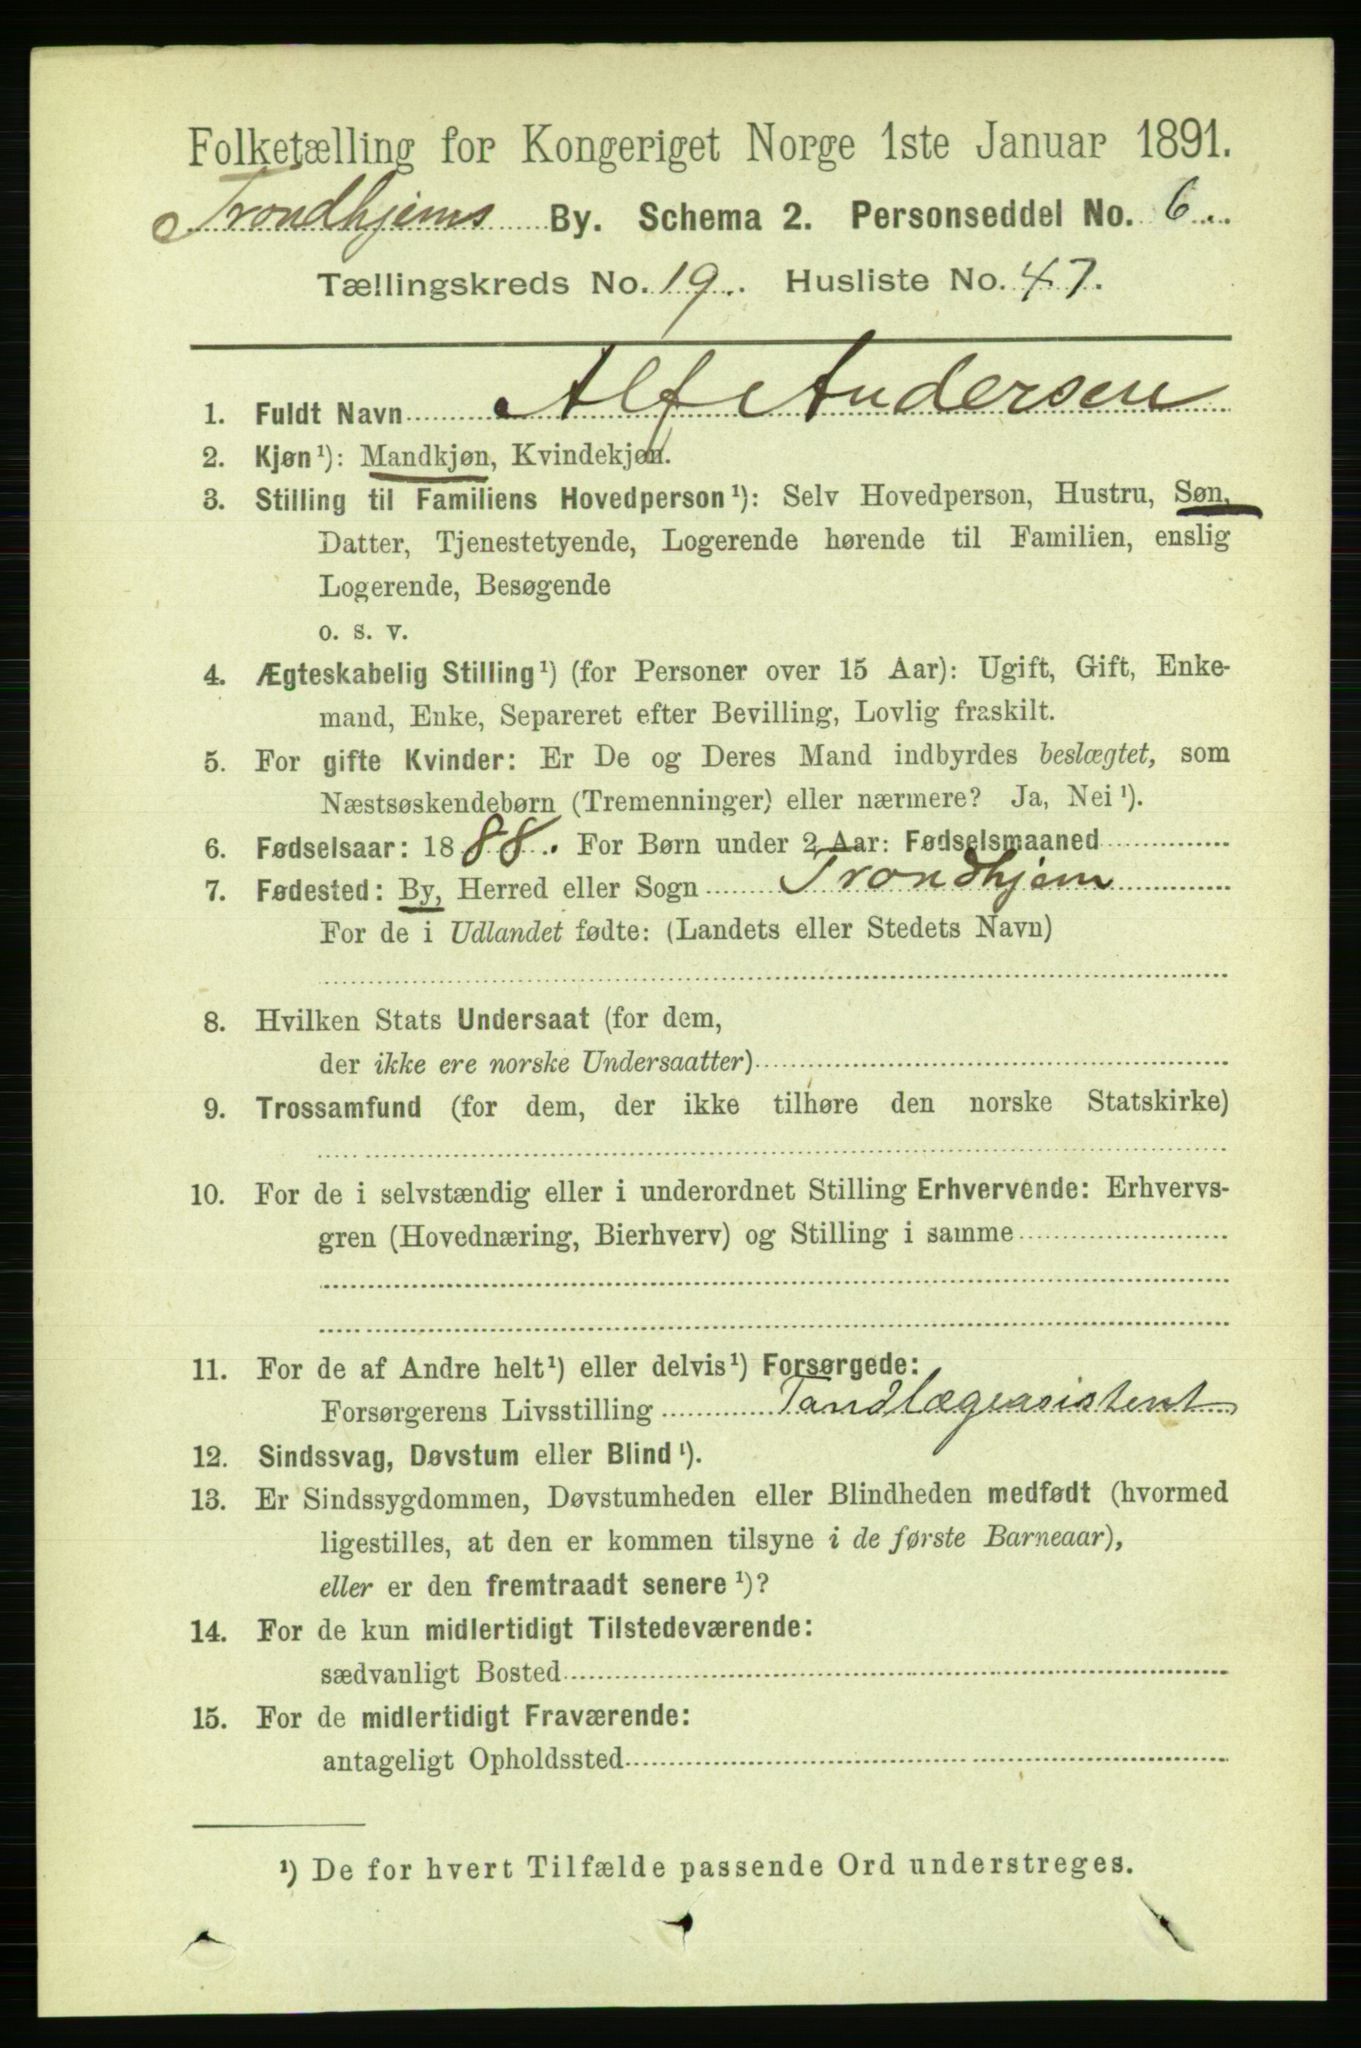 Folketælling for Kongeriget Norge 1ste Januar 1891.
Trondhjems By. Schema 2. Personseddel No. 6.
Tællingskreds No. 19. Husliste No. 47.
1. Fuldt Navn Alf Andersen
2. Kjøn¹): Mandkjøn, Kvindekjøn.
3. Stilling til Familiens Hovedperson¹): Selv Hovedperson, Hustru, Søn,
Datter, Tjenestetyende, Logerende hørende til Familien, enslig
Logerende, Besøgende
o. s. v.
4. Ægteskabelig Stilling¹) (for Personer over 15 Aar): Ugift, Gift, Enke-
mand, Enke, Separeret efter Bevilling, Lovlig fraskilt.
5. For gifte Kvinder: Er De og Deres Mand indbyrdes beslægtet, som
Næstsøskendebørn (Tremenninger) eller nærmere? Ja, Nei¹).
6. Fødselsaar: 1888. For Børn under 2 Aar: Fødselsmaaned
7. Fødested: By, Herred eller Sogn Trondhjem
For de i Udlandet fødte: (Landets eller Stedets Navn)
8. Hvilken Stats Undersaat (for dem,
der ikke ere norske Undersaatter)
9. Trossamfund (for dem, der ikke tilhøre den norske Statskirke)
10. For de i selvstændig eller i underordnet Stilling Erhvervende: Erhvervs-
gren (Hovednæring, Bierhverv) og Stilling i samme
11. For de af Andre helt¹) eller delvis¹) Forsørgede:
Forsørgerens Livsstilling Tandlægeasistent
12. Sindssvag, Døvstum eller Blind¹).
13. Er Sindssygdommen, Døvstumheden eller Blindheden medfødt (hvormed
ligestilles, at den er kommen tilsyne i de første Barneaar),
eller er den fremtraadt senere¹)?
14. For de kun midlertidigt Tilstedeværende:
sædvanligt Bosted
15. For de midlertidigt Fraværende:
antageligt Opholdssted
¹) De for hvert Tilfælde passende Ord understreges.